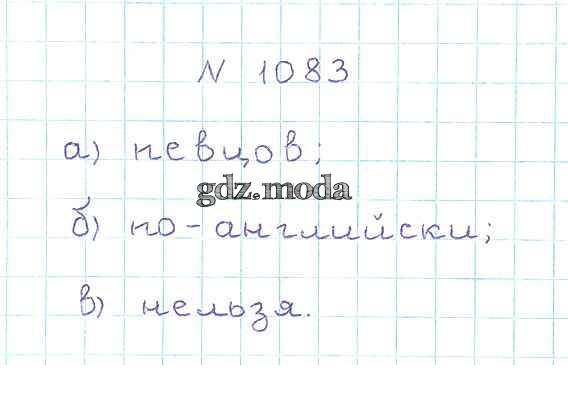 N 1083
а) певцов;
gdz.moda
б) по-английски;
в) нельзя.